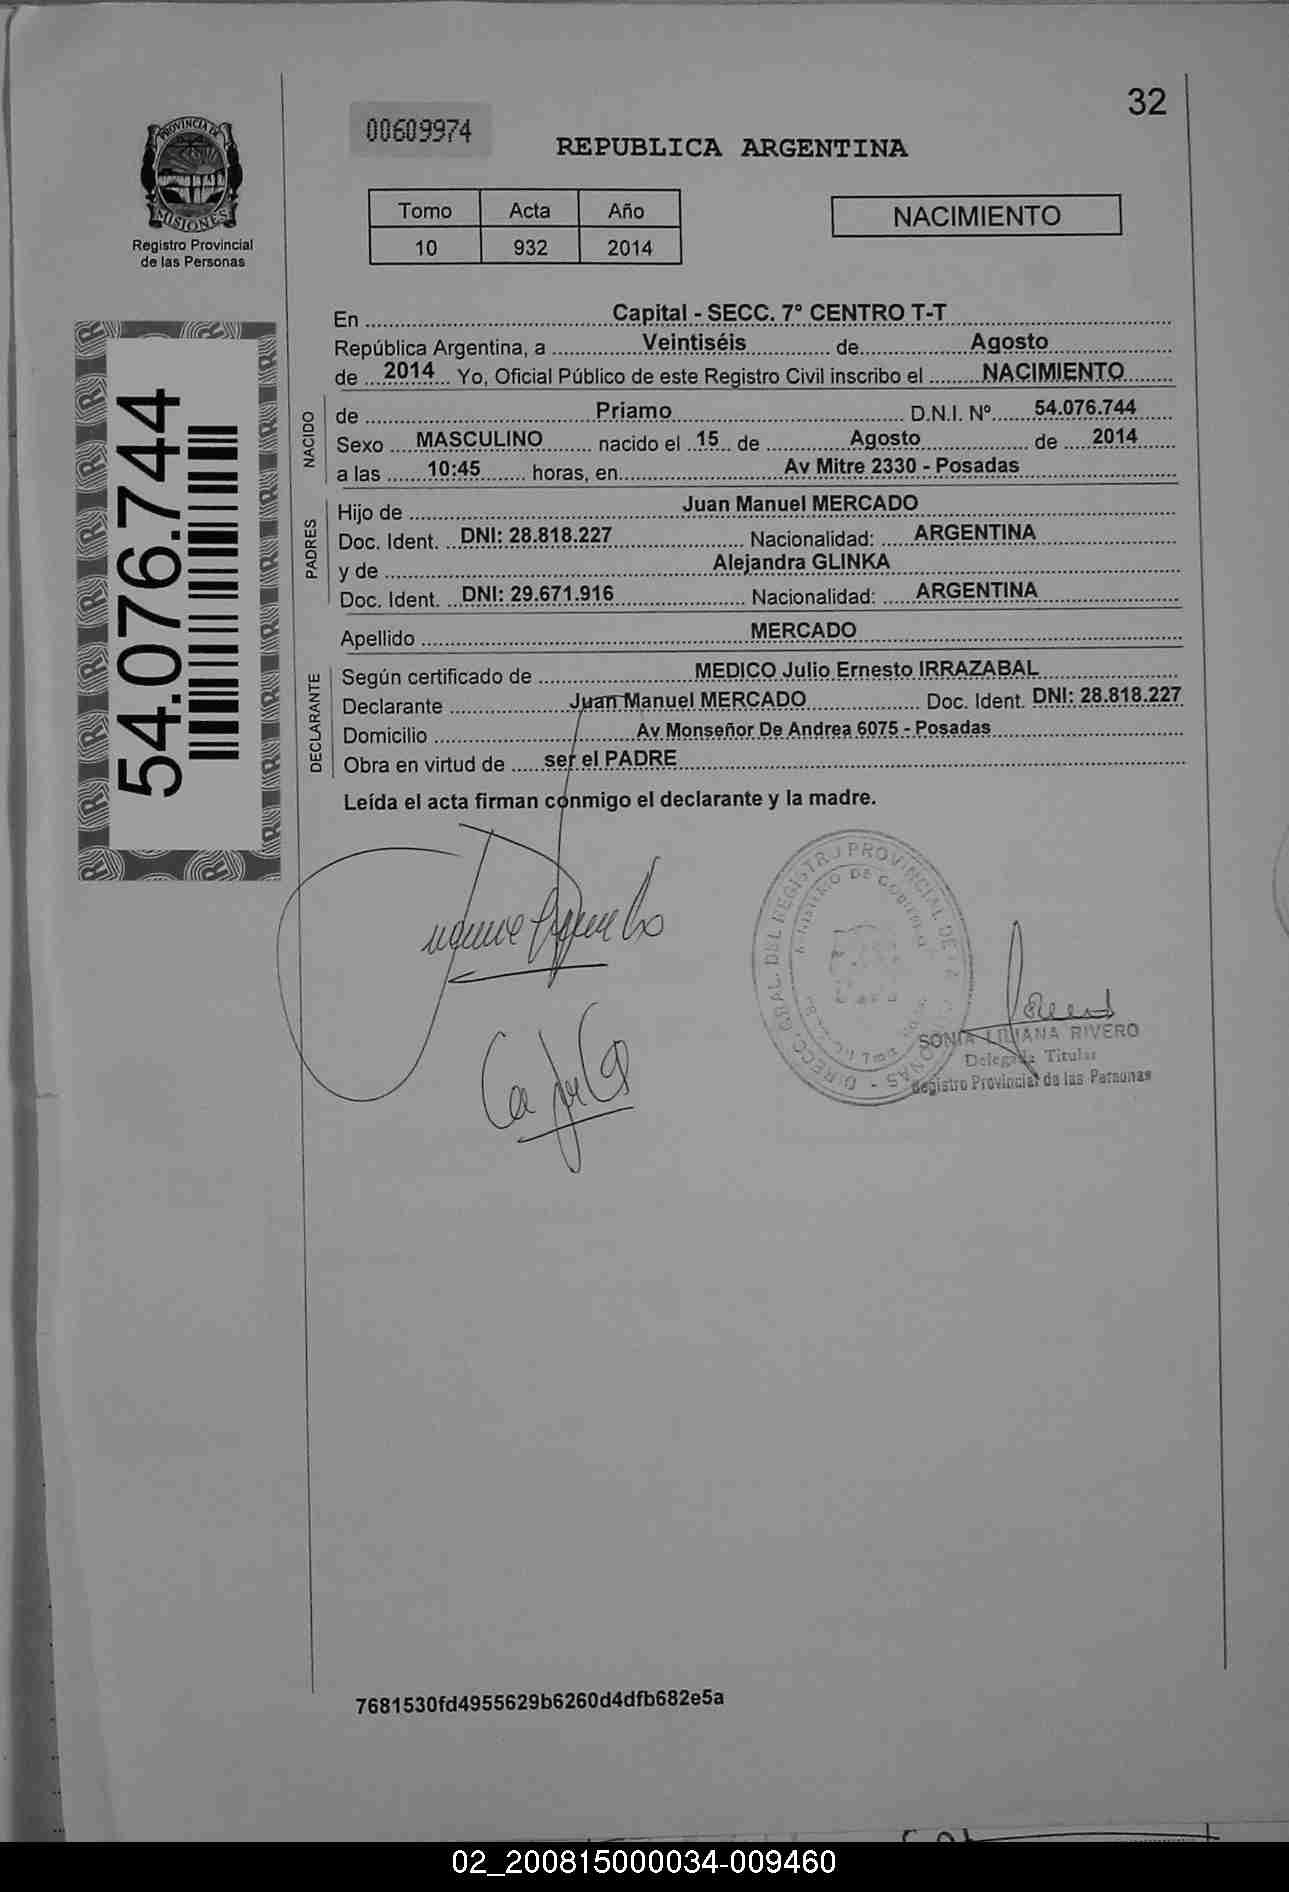 32
00609974
REPUBLICA ARGENTINA
PROVINCIA DE
MISIONES
Registro Provincial
de las Personas
Tomo Acta Año
10 932 2014
NACIMIENTO
54.076.744
En Capital - SECC. 7° CENTRO T-T
República Argentina, a Veintiséis de Agosto
de 2014 Yo, Oficial Público de este Registro Civil inscribo el NACIMIENTO
NACIDO
de Priamo D.N.I. Nº 54.076.744
Sexo MASCULINO nacido el 15 de Agosto de 2014
a las 10:45 horas, en Av Mitre 2330 - Posadas
PADRES
Hijo de Juan Manuel MERCADO
Doc. Ident. DNI: 28.818.227 Nacionalidad: ARGENTINA
y de Alejandra GLINKA
Doc. Ident. DNI: 29.671.916 Nacionalidad: ARGENTINA
Apellido MERCADO
DECLARANTE
Según certificado de MEDICO Julio Ernesto IRRAZABAL
Declarante Juan Manuel MERCADO Doc. Ident. DNI: 28.818.227
Domicilio Av Monseñor De Andrea 6075 - Posadas
Obra en virtud de ser el PADRE
Leída el acta firman conmigo el declarante y la madre.
DIRECC. GRAL. DEL REGISTRO PROVINCIAL DE LAS
MINISTERIO DE GOBIERNO
SONIA LILIANA RIVERO
Delegada Titular
Registro Provincial de las Personas
7681530fd4955629b6260d4dfb682e5a
02_200815000034-009460